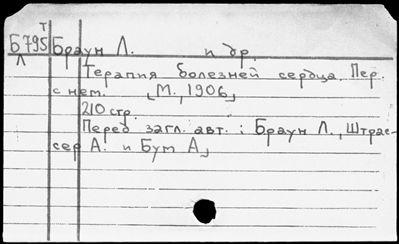 Т
Б795 Браун Л. и др.
Л
Терапия болезней сердца. Пер.
с нем. [М., 1906,]
210 стр.
Перед загл. авт.: Браун Л., Штрас-
сер А. и Бум А.]